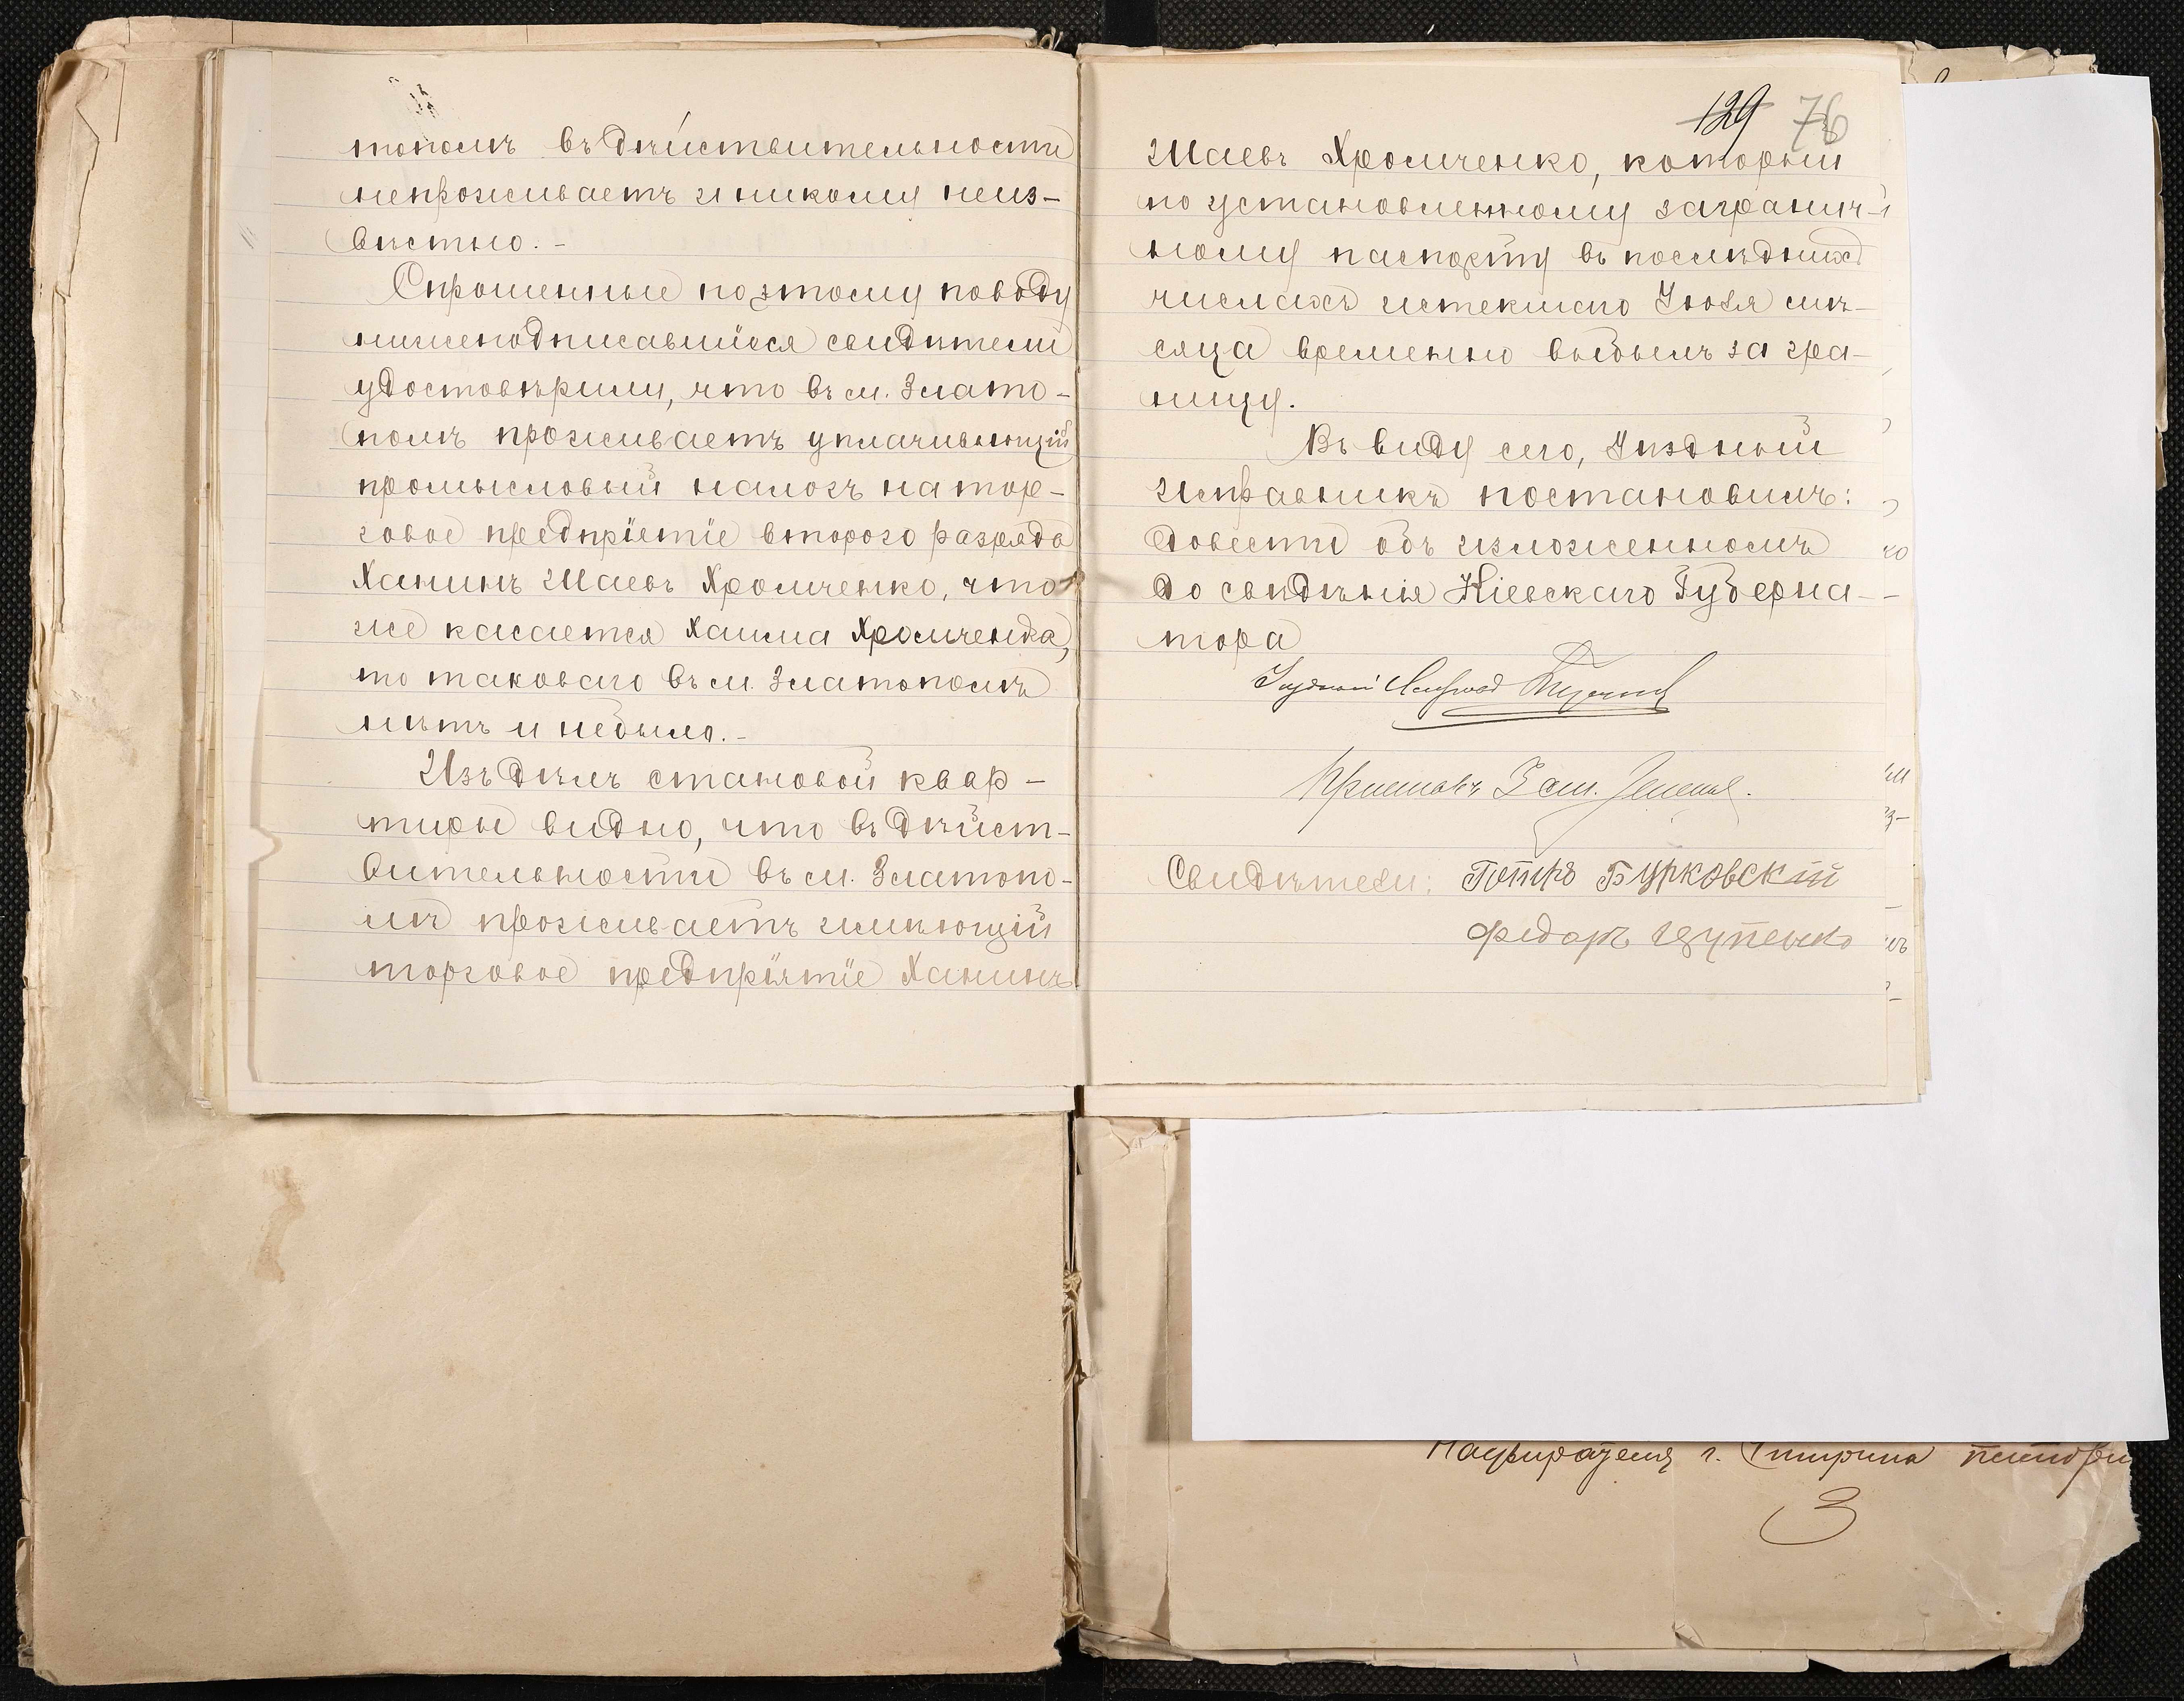 тополѣ въ дѣйствительности
непроживаетъ и никому неиз-
вѣстно. -
Спрошенные по этому поводу
нижеподписавшіеся свидѣтели
удостовѣрили, что въ м. Злато-
полѣ проживаетъ уплачивающій
промысловый налогъ на тор-
говое предпріятіе второго разряда
Ханинъ Шаевъ Хромченко, что
же касается Хаима Хромченка,
то таковаго въ м. Златополѣ
нѣтъ и небыло. -
Изъ дѣлъ становой квар-
тиры видно, что въ дѣйст-
вительности въ м. Златопо-
лѣ проживаетъ имѣющій
торговое предпріятіе Ханинъ
129 76
Шаевъ Хромченко, который
по установленному загранич-
ному паспорту въ послѣднихъ
числахъ истекшаго Іюля мѣ-
сяца временно выбылъ за гра-
ницу.
Въ виду сего, Уѣздный
исправникъ постановилъ:
довести объ изложенномъ
до свѣдѣнія Кіевскаго Губерна-
тора
Уѣздный Исправникъ
Приставъ 3 ст.
Свидѣтели: Петръ Бурковскій
Федоръ
г.
3